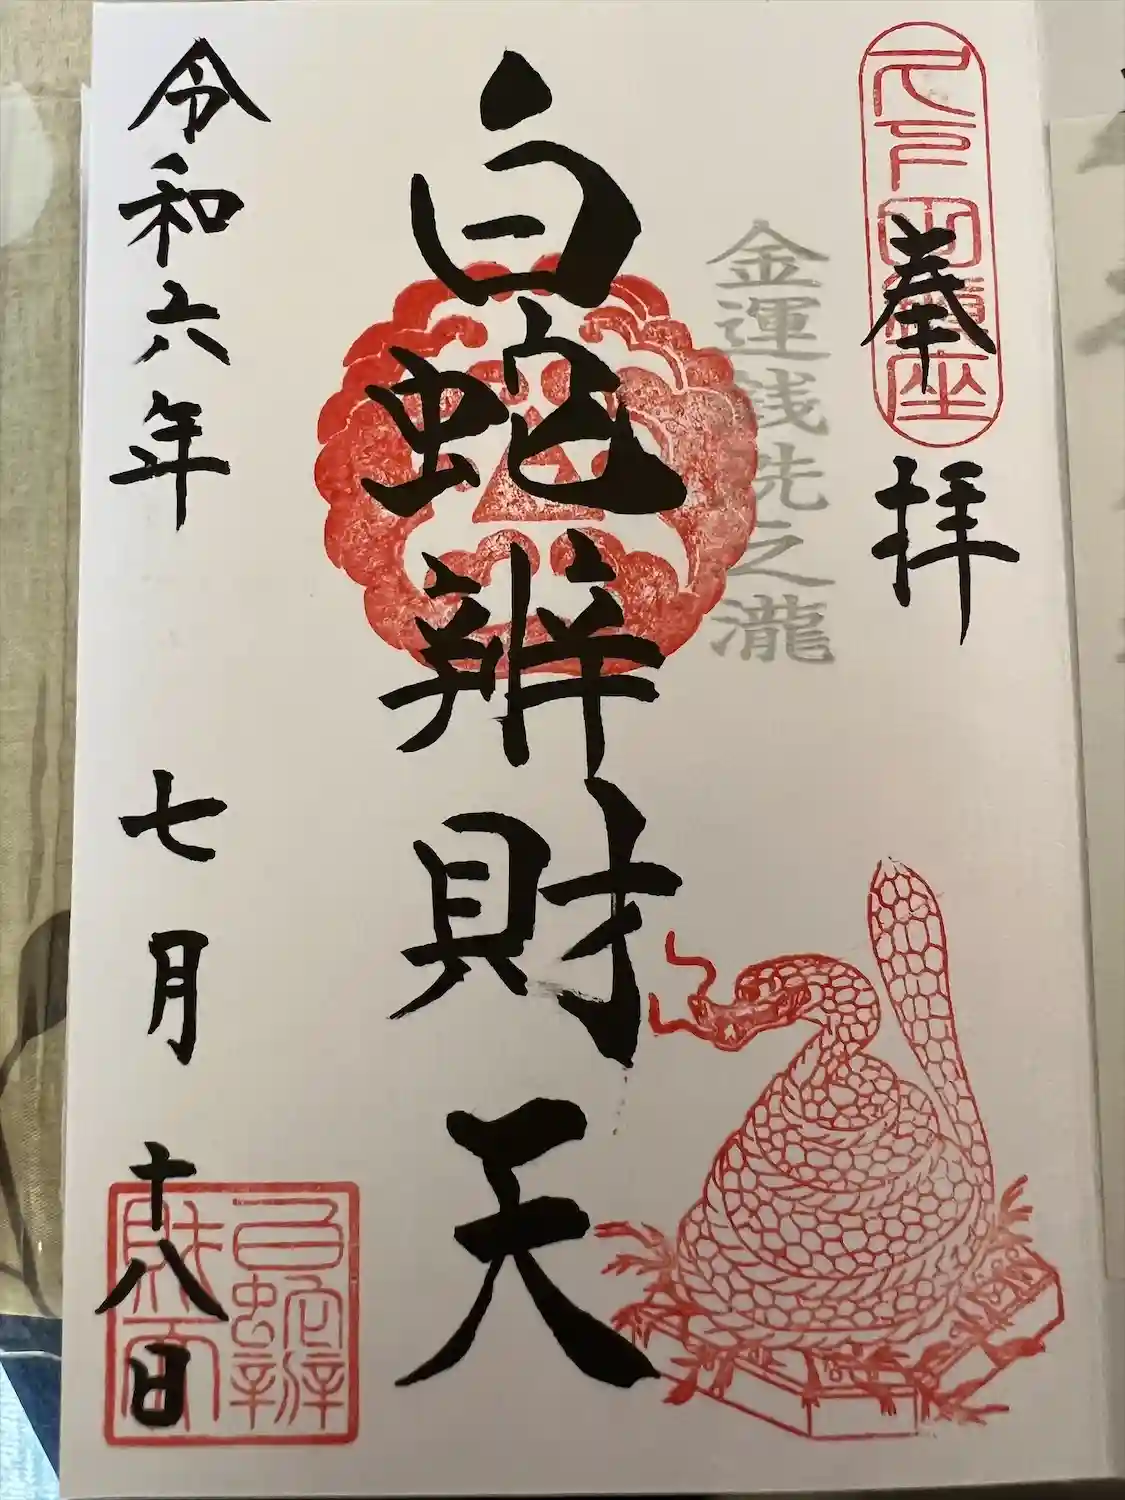 奉拝
金運銭洗之瀧
白蛇辨財天
令和六年 七月十八日
白蛇辨
財天